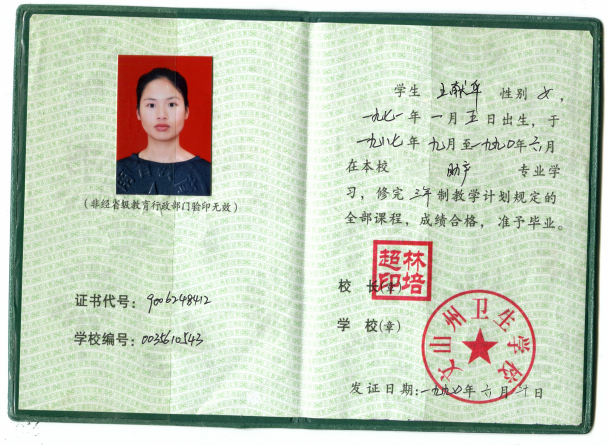 (非经省级教育行政部门验印无效)
证书代号：9006248412
学校编号：0035610543
学生 王献华 性别 女，
一九七一年 一月 五日出生，于
一九八七年 九月至一九九〇年六月
在本校 助产 专业学
习，修完 三年制教学计划规定的
全部课程，成绩合格，准予毕业。
校 长(章)
林培超印
学 校(章)
文山州卫生学校
发证日期：一九九〇年 六月 日